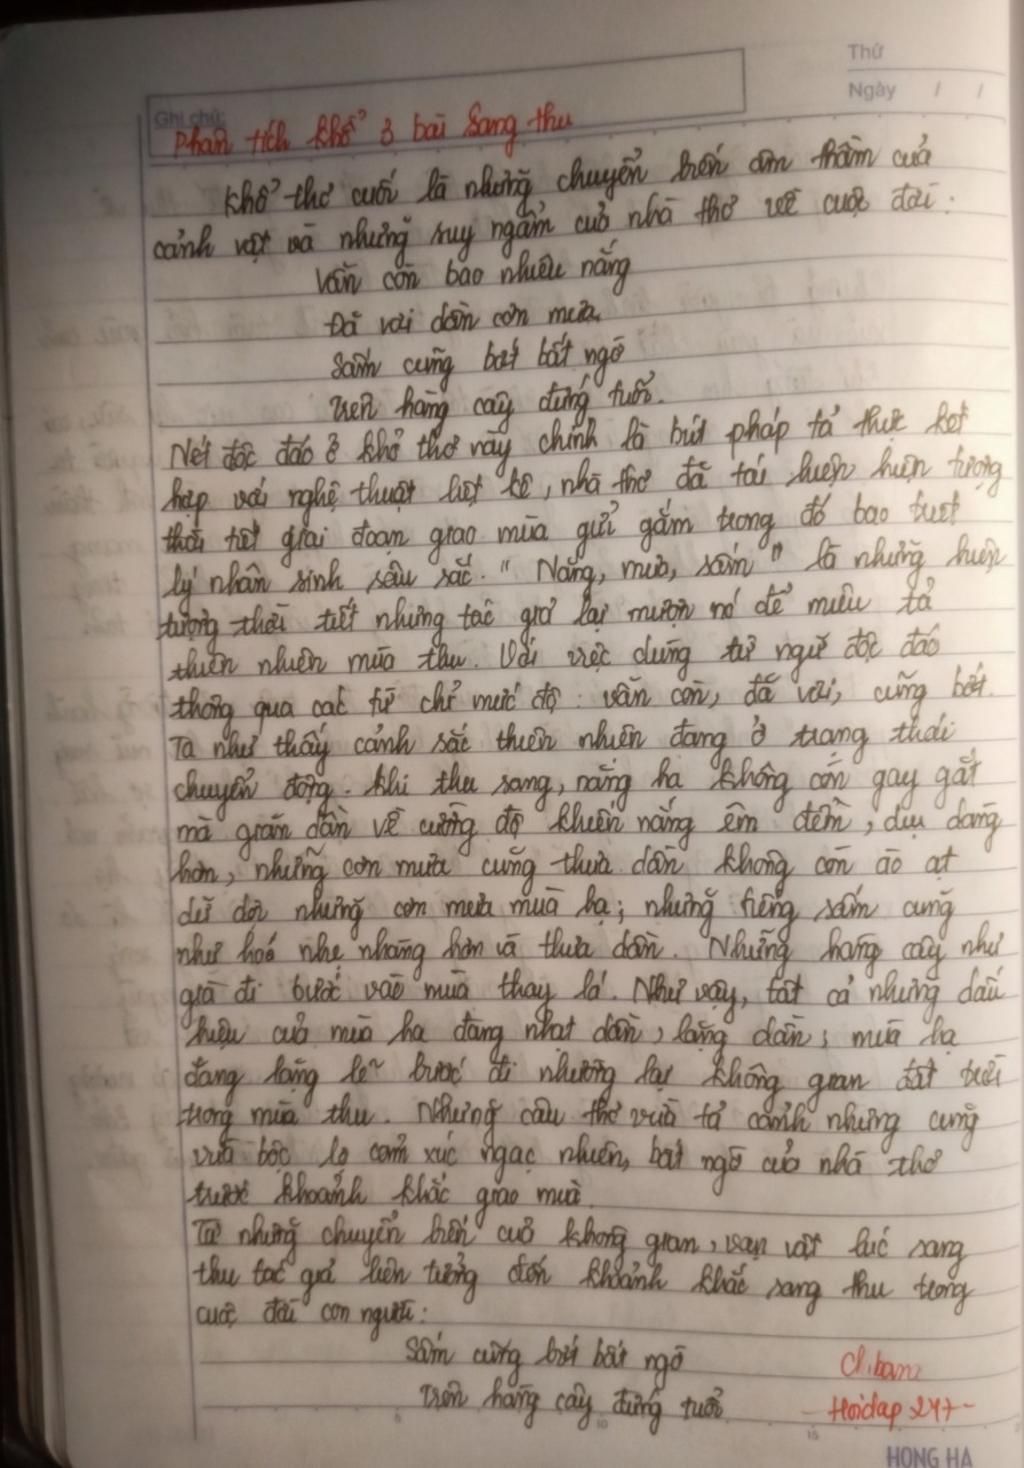 Thứ
Ngày / /
Ghi chú:
Phân tích khổ 3 bài Sang thu
Khổ thơ cuối là những chuyển biến âm thầm của
cảnh vật và những suy ngẫm của nhà thơ về cuộc đời:
Vẫn còn bao nhiêu nắng
Đã vơi dần cơn mưa
Sấm cũng bớt bất ngờ
Trên hàng cây đứng tuổi.
Nét độc đáo ở khổ thơ này chính là bút pháp tả thực kết
hợp với nghệ thuật liệt kê, nhà thơ đã tái hiện hiện tượng
thời tiết giai đoạn giao mùa gửi gắm trong đó bao triết
lý nhân sinh sâu sắc. "Nắng, mưa, sấm" là những hiện
tượng thời tiết nhưng tác giả lại mượn nó để miêu tả
thiên nhiên mùa thu. Với việc dùng từ ngữ độc đáo
thông qua các từ chỉ mức độ: vẫn còn, đã vơi, cũng bớt.
Ta như thấy cảnh sắc thiên nhiên đang ở trạng thái
chuyển động. Khi thu sang, nắng hạ không còn gay gắt
mà giảm dần về cường độ khiến nắng êm đềm, dịu dàng
hơn, những cơn mưa cũng thưa dần không còn ào ạt
dữ dội những cơn mưa mùa hạ; những tiếng sấm cũng
như hoá nhẹ nhàng hơn và thưa dần. Những hàng cây như
già đi bước vào mùa thay lá. Như vậy, tất cả những dấu
hiệu của mùa hạ đang nhạt dần, lặng dần; mùa hạ
đang lặng lẽ bước đi nhường lại không gian đất trời
trong mùa thu. Những câu thơ vừa tả cảnh nhưng cũng
vừa bộc lộ cảm xúc ngạc nhiên, bất ngờ của nhà thơ
trước khoảnh khắc giao mùa.
Từ những chuyển biến của không gian, vạn vật lúc sang
thu tác giả liên tưởng đến khoảnh khắc sang thu trong
cuộc đời con người:
Sấm cũng bớt bất ngờ
Trên hàng cây đứng tuổi
Hoidap 247
5 10 15
HONG HA